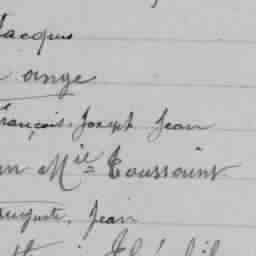 Jacques
ange
François Joseph Jean
Mie Toussaint
Auguste, Jean